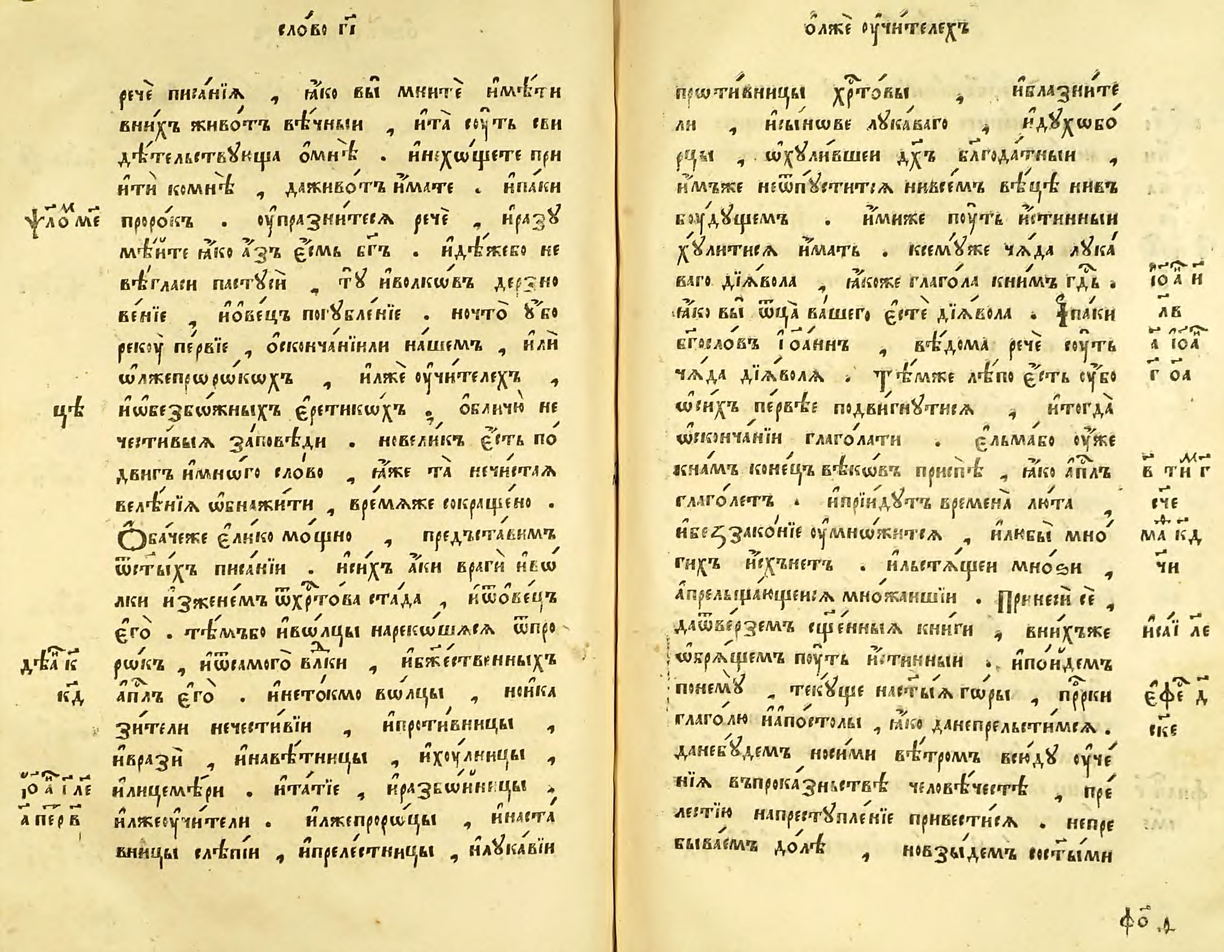 сло́во г҃і
речѐ писа́нїѧ , ꙗ҆́ко вы̀ мнитѐ и҆мѣ́ти
вни́хъ живо́тъ вѣ́чныи , и҆та̀ сꙋ́ть сви
дѣ́тельствꙋюща ѻ҆мнѣ̀ . и҆нехо́щете прі
и҆тѝ комнѣ̀ , даживо́тъ и҆́мате . и҆па́ки
ѱало́ м҃е
проро́къ . ᲂу҆праздни́теся речѐ , и҆разꙋ
мѣ́йте ꙗ҆́ко а҆́зъ є҆́смь бг҃ъ . и҆дѣ́жебо не
вѣ́гласи пастꙋсѝ , тꙋ̀ и҆волкѡ́въ дерзно
ве́нїе , и҆ѻ҆ве́цъ погꙋбле́нїе . ночто̀ ᲂу҆́бо
рекꙋ̀ пе́рвїе , ѻ҆сконча́нїили на́шемъ , и҆лѝ
ѡ҆лжепрѡрѡ́кѡхъ , и҆лжѐ ᲂу҆чи́телехъ ,
цѣ
и҆ѡ҆безбѡ́жныхъ є҆ретикѡ́хъ . ѻ҆бличю̀ не
чести́выѧ за́повѣди . новели́къ є҆́сть по́
двигъ и҆мнѡ́го сло́во , ꙗ҆́же та̀ нечи́стаѧ
велѣ́нїѧ ѡ҆бнажи́ти , вре́мѧже сокраще́но .
Ѻ҆ба́чеже є҆ли́ко мо́щно , предъста́вимъ
ѿст҃ы́хъ писа́нїи . и҆си́хъ а҆́ки врагѝ и҆вѡ́
лки и҆зжене́мъ ѿхрⷭ҇то́ва ста́да , и҆ѿѻ҆ве́цъ
є҆гѡ̀ . тѣ́мъбо и҆вѡ́лцы нарекѡ́шасѧ ѿпро
дѣѧ҃ к
рѡ́къ , и҆ѿсамого̀ влⷣки , и҆бж҃е́ственныхъ
к҃д
а҆пⷭ҇лъ є҆гѡ̀ . и҆нето́кмо вѡ́лцы , нои҆ка
зи́тели нечести́вїи , и҆проти́вницы ,
и҆вразѝ , и҆навѣ́тницы , и҆хꙋ́лницы ,
і҆ѡа҃ г҃і ле
и҆лицемѣ́ри . и҆та́тїе , и҆разбѡ́йницы ,
а҃ пе́р в҃
и҆лжеᲂу҆чи́тели . и҆лжепроро́цы , и҆наста́
вницы слѣпі́и , и҆преле́стницы , и҆лꙋка́вїи
ѻ҆лжѐ ᲂу҆чи́телехъ
прѡти́вницы хрⷭ҇то́вы , и҆блазни́те
ли , и҆сы́нѡве лꙋка́ваго , и҆дꙋхѡбо́
рцы , ѡ҆хꙋ́лившеи дх҃ъ бл҃года́тныи ,
и҆́мъже неѿпꙋсти́тсѧ нивсе́мъ вѣ́цѣ нивъ
бꙋ́дꙋщемъ . и҆́миже пꙋ́ть и҆́стинныи
хꙋ́литисѧ и҆́мать . ксемꙋ́же чѧ́да лꙋка́
ваго дїѧ́вола , ꙗ҆́коже глаго́ла кни́мъ гдⷭ҇ь .
і҆ѡа҃ и҃
ꙗ҆́ко вы̀ ѿц҃а̀ ва́шего є҆стѐ дїѧ́вола . І҆па́ки
л҃в
бг҃осло́въ і҆ѻ҆а́ннъ , вѣ́дома речѐ сꙋ́ть
а҃ і҆ѻа҃
чѧ́да дїѧ́волѧ . Тѣ́мже лѣ́по є҆́сть ᲂу҆́бо
г҃ оа
ѡ҆си́хъ пе́рвѣе подви́гнꙋтисѧ , и҆тогда̀
ѡ҆сконча́нїи глаго́лати . є҆льма́бо ᲂу҆́же
кна́мъ коне́цъ вѣкѡ́въ приспѣ̀ , ꙗ҆́ко а҆пⷭ҇лъ
в҃ тиⷨ г҃
глаго́летъ . и҆прїи́дꙋтъ времена̀ лю́та ,
сч҃е
и҆беззако́нїе ᲂу҆мнѡ́житсѧ , и҆любы̀ мно́
маⷴ к҃д
гихъ и҆́схънетъ . и҆льстѧ́щеи мно́ѕи ,
чи
а҆прельща́ющеисѧ мно́жаишїи . Прине́си сѐ ,
даѿве́рземъ сщ҃е́нныѧ кни́ги , вни́хъже
и҆са́і ле
ѡ҆брѧ́щемъ пꙋ́ть и҆́стинныи . и҆по́йдемъ
понемꙋ̀ , текꙋ́ще наст҃ы́ѧ го́ры , прⷪ҇рки
є҆фе҃ д҃
глаго́лю и҆а҆по́столы , ꙗ҆́ко данепрельсти́мсѧ .
ск҃е
данебꙋ́демъ носи́ми вѣ́тромъ всю́дꙋ ᲂу҆че́
нїѧ въпрока́зньствѣ человѣ́честѣ , пре́
лестїю напрестꙋпле́нїе привести́сѧ . непре
быва́емъ до́лѣ , новзы́демъ сост҃ы́ми